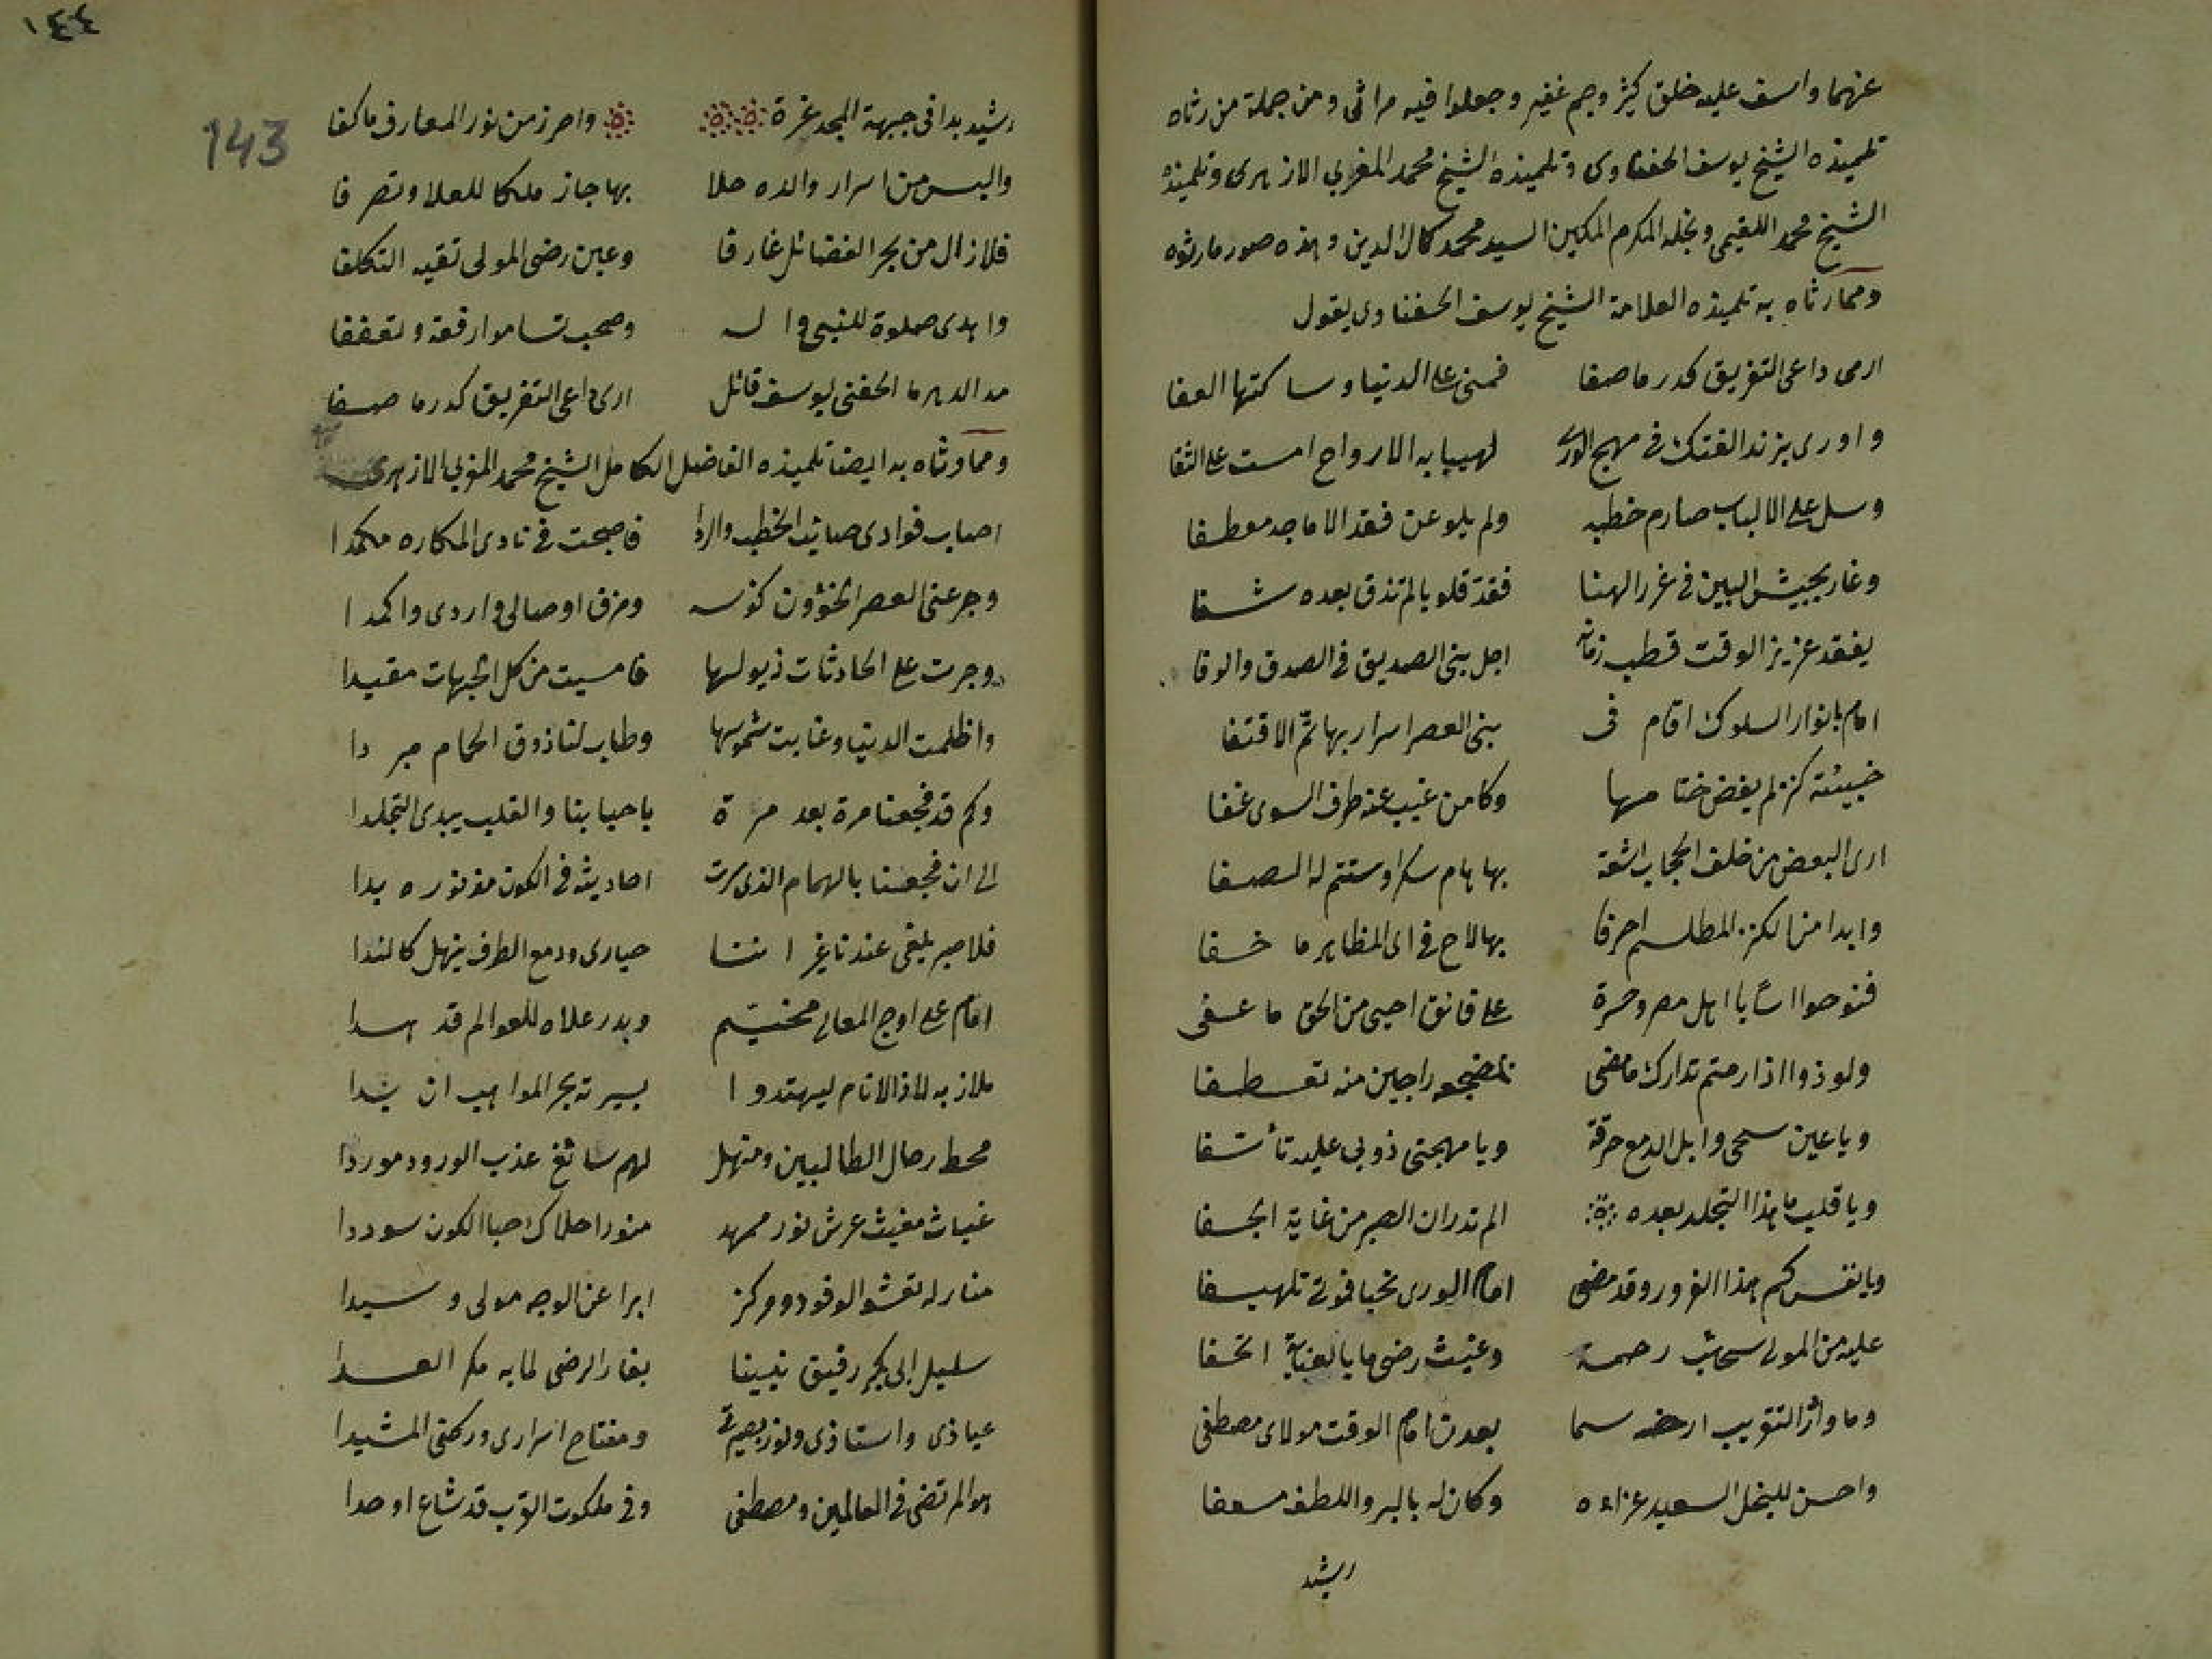 عنهما واسف عليه خلق كثير وجم غفير وجعلوا فيه مراثى ومن جملة من رثاه
تلميذه الشيخ يوسف الحفناوى وتلميذه الشيخ محمد المغربي الازهرى وتلميذه
الشيخ محمد اللقيمى ونجله المكرم المكين السيد محمد كمال الدين وهذه صور مارثوه
ومما رثاه به تلميذه العلامة الشيخ يوسف الحفناوى يقول
ارى داعى التفريق كدر ما صفا فمنى على الدنيا وساكنها العفا
واورى بزند الفتك فى مهج الورى لهيبا به الارواح امست على الثفا
وسل على الالباب صارم خطبه ولم يلو عن فقد الاماجد معطفا
وغار بجيش البين فى غرر الهنا فقد قلوبا لم تذق بعده شفا
بفقد عزيز الوقت قطب زمانه اجل بنى الصديق فى الصدق والوفا
امام بانوار السلوك اقام فى بنى العصر اسرار بها تم الاقتفا
خبيئة كنز لم يفض ختامها وكا من غيب عنه طرف السوى غفا
ارى البعض من خلف الحجاب اشعة بها هام سكرا وستتم له الصفا
وابدا من الكنز المطلسم احرفا بها لاح فى اى المظاهر ما خفا
فنوحوا اسا يا اهل مصر وحسرة على فائق احيى من الحق ما عفى
ولوذوا اذا رمتم تدارك ما مضى بمضجعه راجين منه تعطفا
ويا عين سحى وابل الدمع حرقة ويا مهجتى ذوبى عليه تأسفا
ويا قلب ما هذا التجلد بعده الم تدر ان الصبر من غاية الجفا
ويا نفس كم هذا الغرور وقد مضى امام الورى نحبا فوتى تلهفا
عليه من المولى سحائب رحمة وغيث رضى ما بالعناية اتحفا
وما واثر التقريب ارضه سما بعدن امام الوقت مولاى مصطفى
واحسن للنجل السعيد عزاءه وكان له بالبر واللطف مسعفا
رشيد
١٤٤
143
رشيد بدا فى جبهة المجد غرة واحرز من نور المعارف ما كفا
والبس من اسرار والده حلا بها حاز ملكا للعلا وتصرفا
فلا زال من بحر الفضائل غارفا وعين رضى المولى تقيه التكلفا
واهدى صلوة للنبى واله وصحب تساموا رفعة وتعففا
مد الدهر ما الحفنى يوسف قائل ارى داعى التفريق كدر ما صفا
ومما رثاه به ايضا تلميذه الفاضل الكامل الشيخ محمد المغربى الازهرى
اصاب فوادى صائب الخطب والردا فاصبحت فى نادى المكاره مكمدا
وجرعنى العصر الخؤون كؤسه ومزق اوصالى واردى واكمدا
وجرت على الحادثات ذيولها فامسيت من كل الجهات مقيدا
واظلمت الدنيا وغابت شموسها وطاب لنا ذوق الحمام مبردا
وكم قد فجعنا مرة بعد مرة باحبابنا والقلب يبدى التجلدا
الى ان فجعنا بالهمام الذى سرت احاديثه فى الكون مذ نوره بدا
فلا صبر يلفى عندنا غير اننا حيارى ودمع الطرف ينهل كالندا
امام على اوج المعالى مخيم وبدر علاه للعوالم قد هدا
ملاذ به لاذ الانام ليهتدوا بسيرته بحر المواهب ان بدا
محط رحال الطالبين ومنهل لهم سائغ عذب الورود موردا
غياث مغيث عرش نور ممهد منور احلاك حبا الكون سوددا
منار له تعشو الوفود ومركز ابرا عن الوجه مولى وسيدا
سليل ابى بكر رفيق نبينا بغار الرضى لما به مكر العدا
عياذى واستاذى ونور بصيرتى ومفتاح اسرارى وركنى المشيدا
هو المرتضى فى العالمين ومصطفى وفى ملكوت القرب قد شاع اوحدا